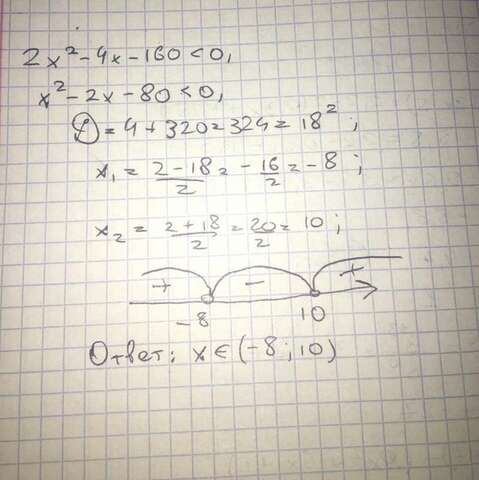 2x² - 4x - 160 < 0,
x² - 2x - 80 < 0,
D = 4 + 320 = 324 = 18² ;
x₁ = (2 - 18)/2 = - 16/2 = - 8 ;
x₂ = (2 + 18)/2 = 20/2 = 10 ;
+ - +
-8 10
Ответ: x ∈ (-8 ; 10)